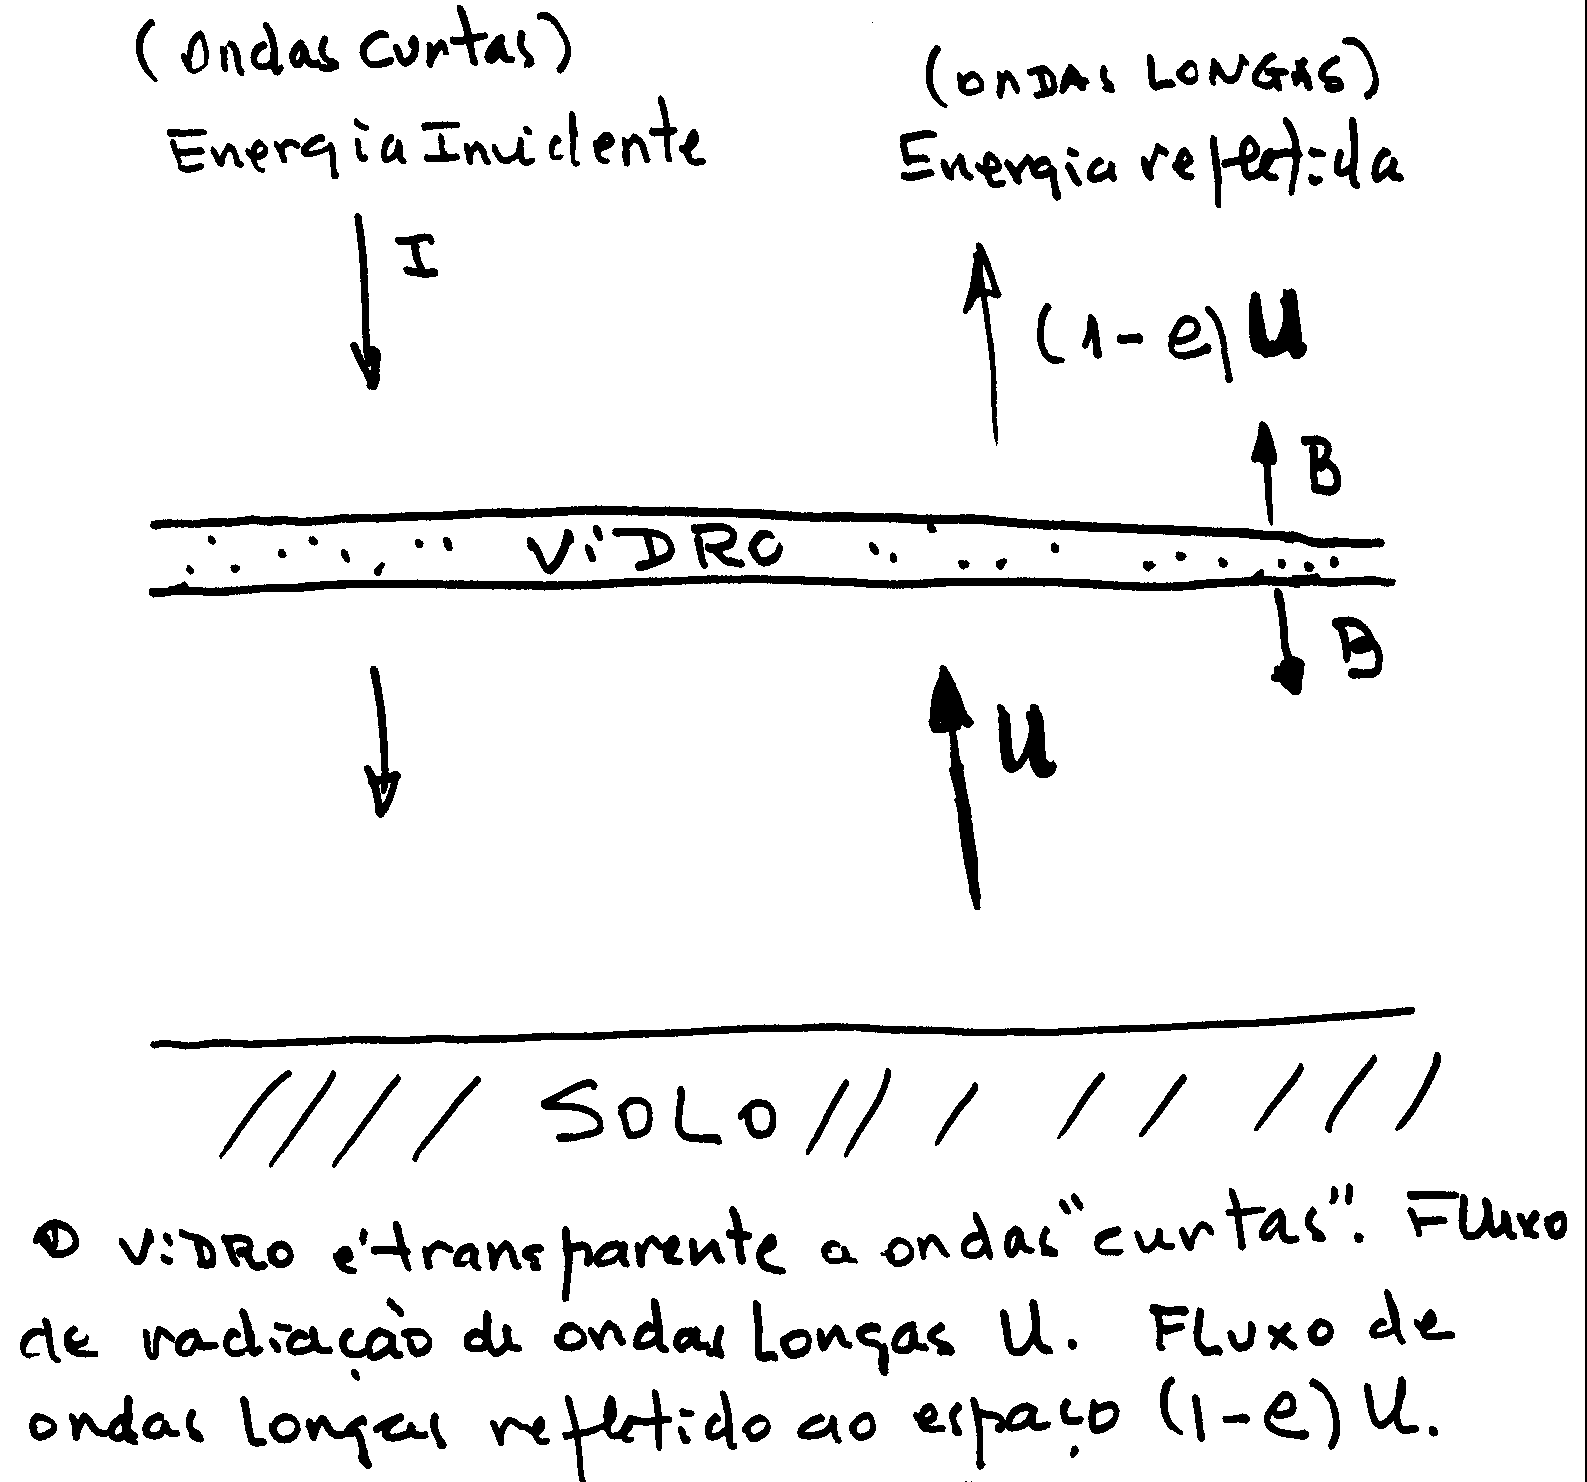 (Ondas Curtas)
Energia Incidente
I
(ONDAS LONGAS)
Energia refletida
(1-e) U
B
ViDRO
B
U
SOLO
O ViDRO é transparente a ondas "curtas". Fluxo
de radiação de ondas Longas U. FLuxo de
ondas Longas refletido ao espaço (1-e) U.